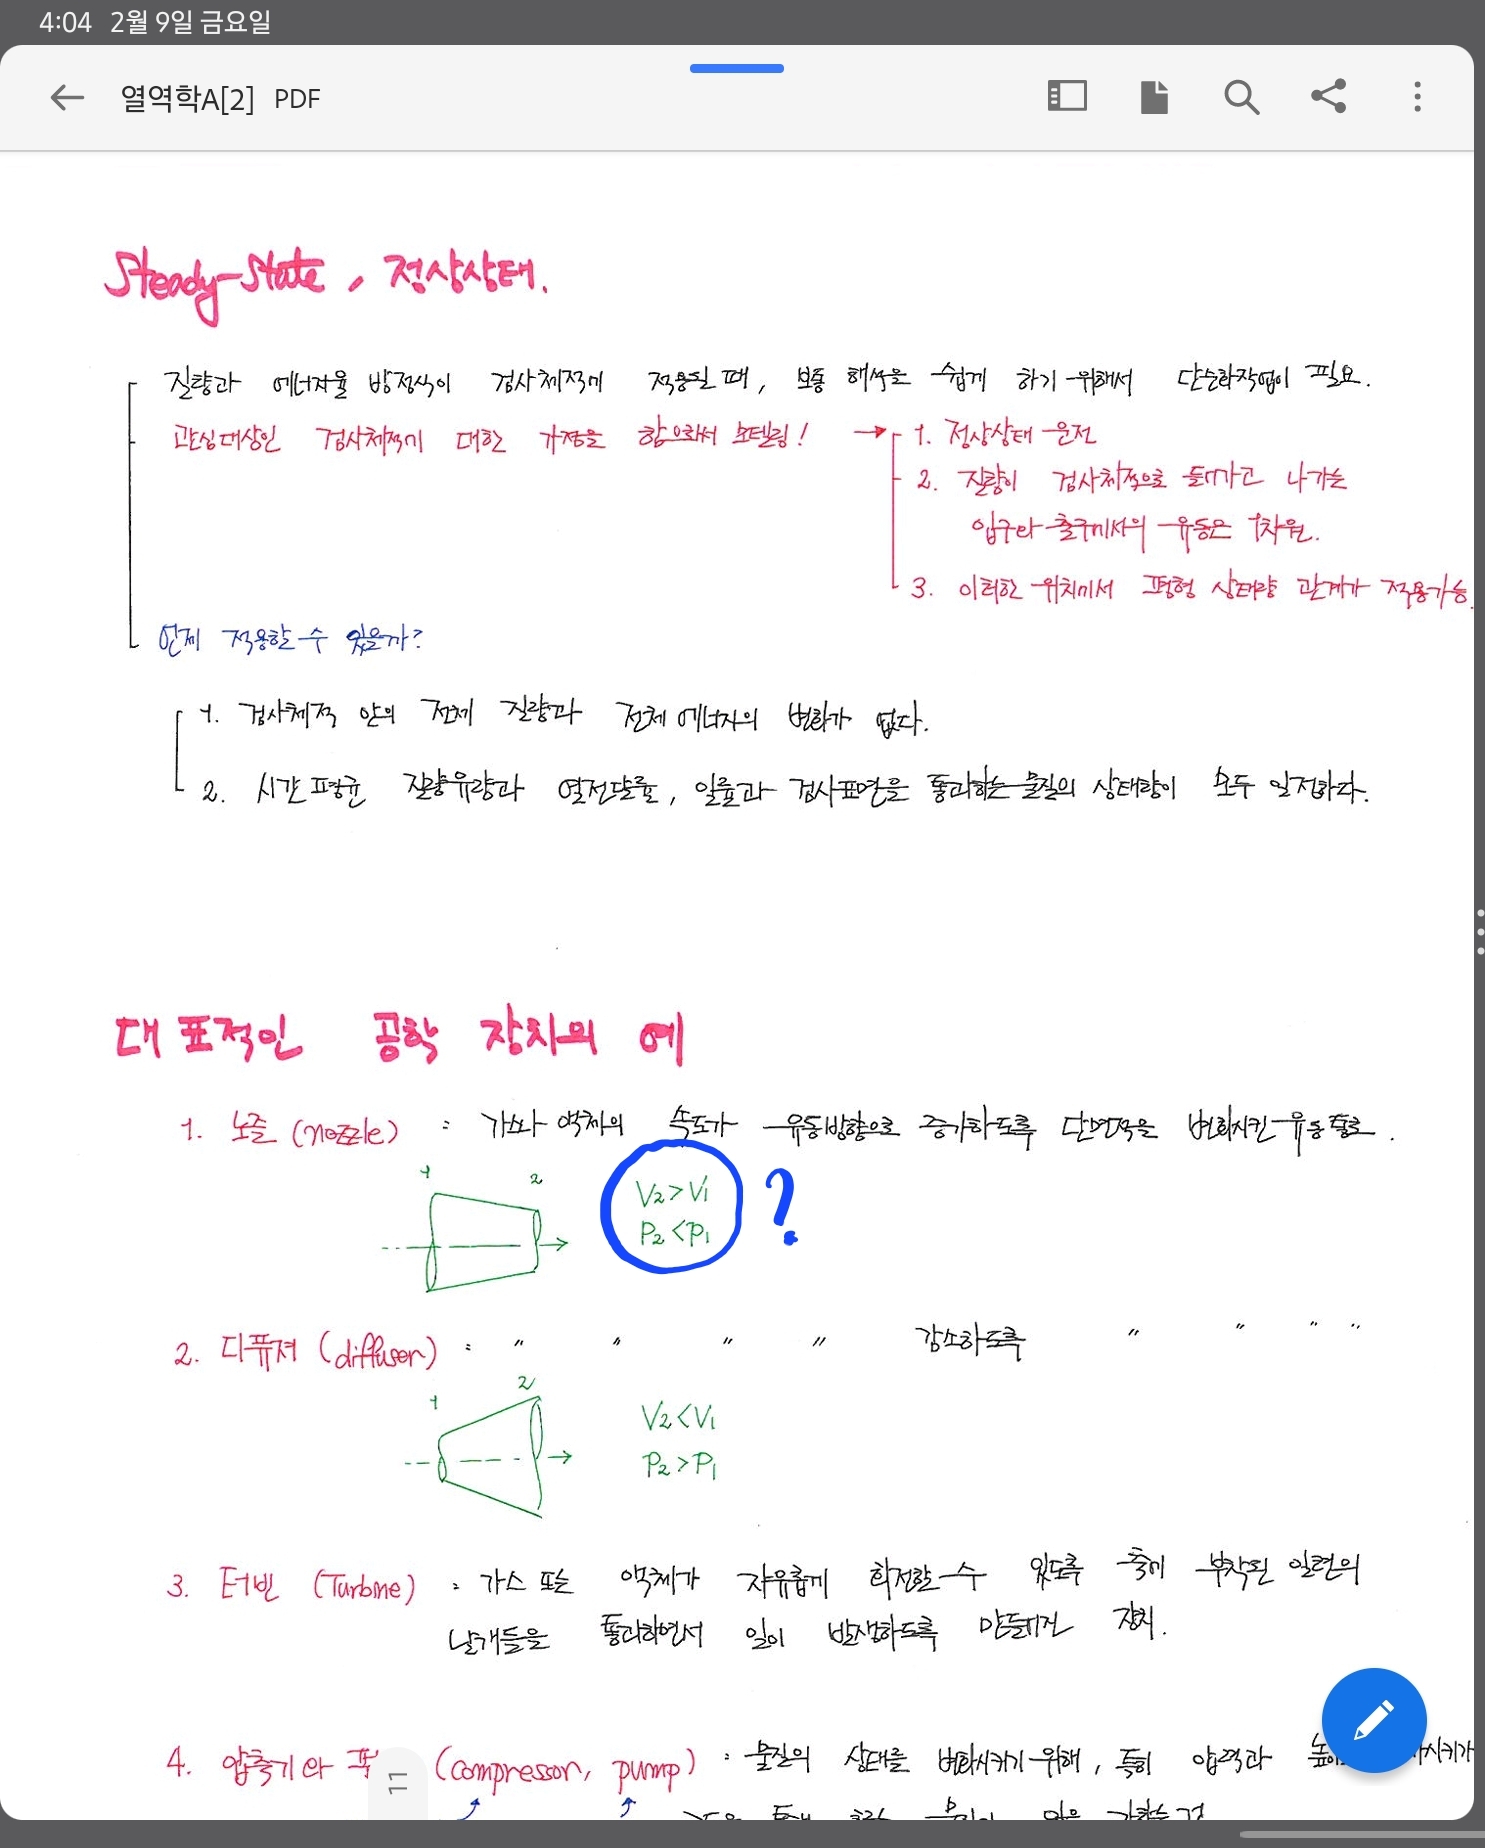 4:04 2월 9일 금요일
열역학A[2] PDF
Steady-State, 정상상태.
질량과 에너지율 방정식이 검사체적에 적용될 때, 보통 해석을 쉽게 하기 위해서 단순화작업이 필요.
관심대상인 검사체적에 대한 가정을 함으로써 모델링! → 1. 정상상태 운전
2. 질량이 검사체적으로 들어가고 나가는
입구와 출구에서의 유동은 1차원.
3. 이러한 위치에서 평형 상태량 관계가 적용가능.
언제 적용할 수 있을까?
1. 검사체적 안의 전체 질량과 전체 에너지의 변화가 없다.
2. 시간 평균 질량유량과 열전달률, 일률과 검사표면을 통과하는 물질의 상태량이 모두 일정하다.
대표적인 공학 장치의 예
1. 노즐 (nozzle) : 가스나 액체의 속도가 유동방향으로 증가하도록 단면적을 변화시킨 유동 통로.
1 2
V2 > V1
P2 < P1
?
2. 디퓨져 (diffuser) : " " " " 감소하도록 " " " "
1 2
V2 < V1
P2 > P1
3. 터빈 (Turbine) : 가스 또는 액체가 자유롭게 회전할 수 있도록 축에 부착된 일련의
날개들을 통과하면서 일이 발생하도록 만들어진 장치.
4. 압축기와 (compressor, pump) : 물질의 상태를 변화시키기 위해, 특히 압력과
11